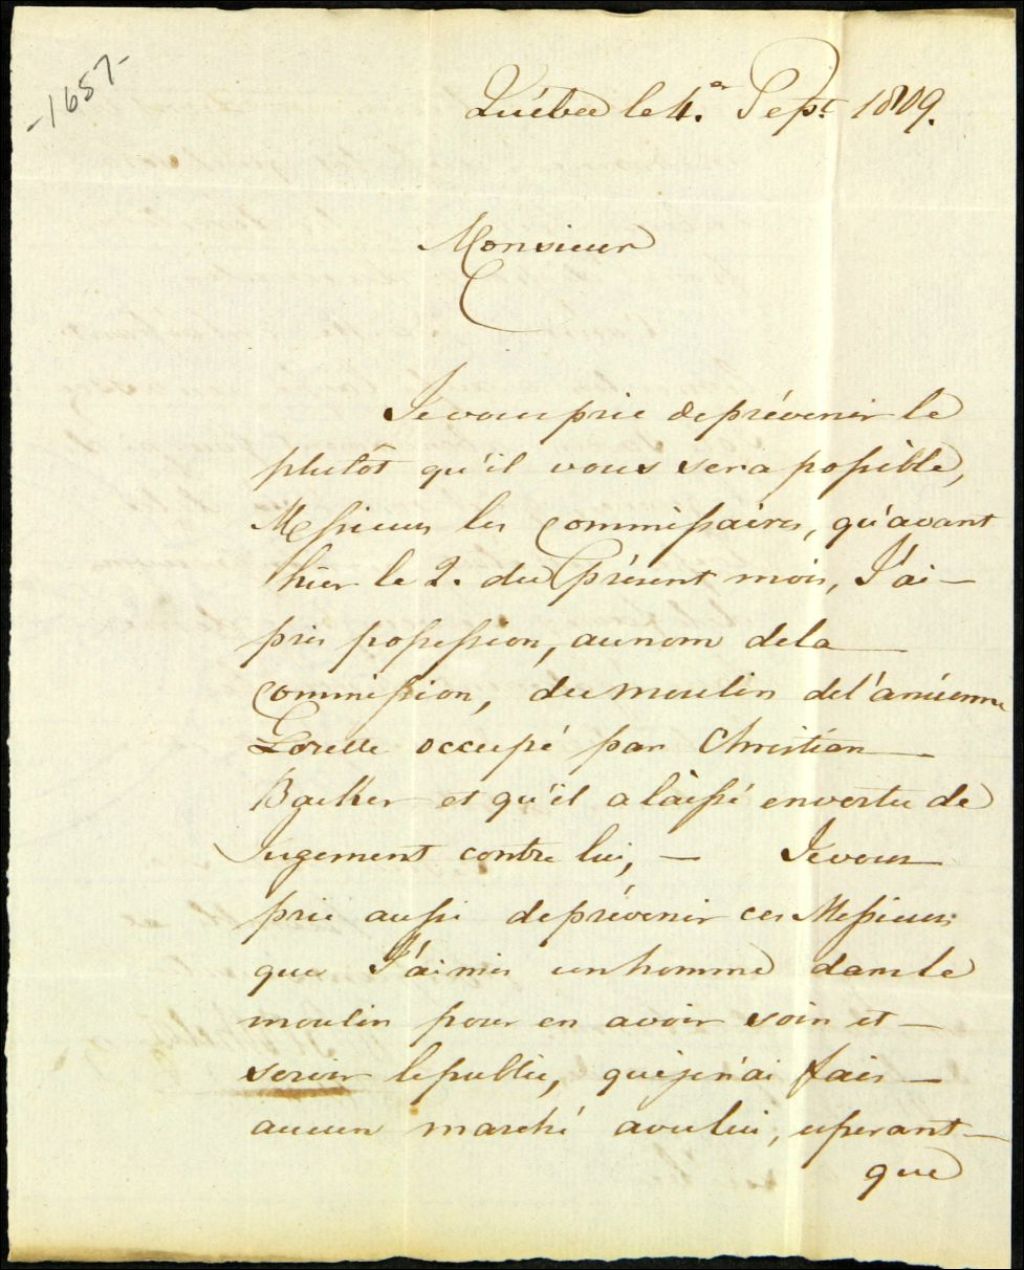 -1657-
Québec le 4. Sept. 1809.
Monsieur
Je vous prie de prévenir le
plutôt qu'il vous sera possible,
Messieurs les Commissaires, qu'avant
hier le 2. du présent mois, J'ai
pris possession, au nom de la
Commission, du moulin de l'ancienne
Lorette occupé par Christian
Backer et qu'il a laissé en vertu de
Jugement contre lui, — Je vous
prie aussi de prévenir ces Messieurs
que J'ai mis un homme dans le
moulin pour en avoir soin et
servir le public, que je n'ai fais
aucun marché avec lui, esperant
que